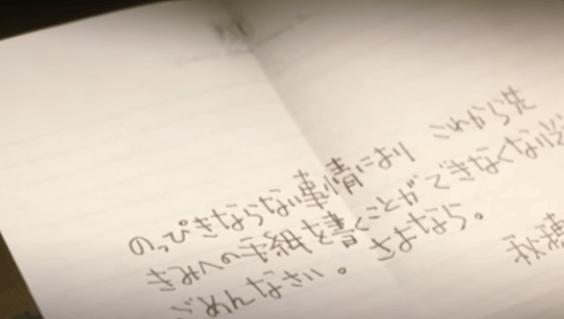 のっぴきならない事情により これから先
きみへの手紙を書くことができなくなりそ
ごめんなさい。さよなら。
秋穂